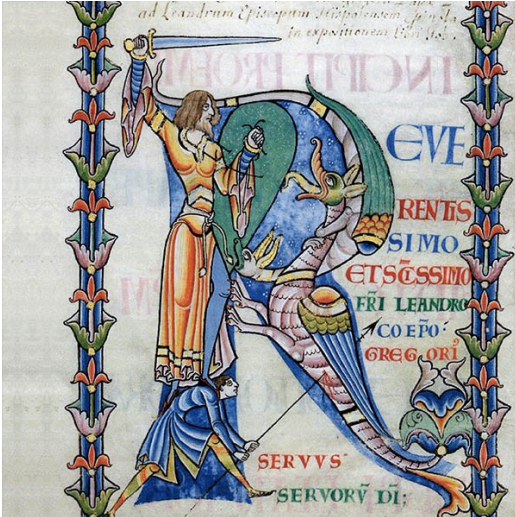 ad Leandrum Episcopum Hispalensem
in expositionem
REVE
RENTIS
SIMO
ET SC̄ISSIMO
FR̄I LEANDRO
CO EP̄O:
GREGORI⁹
SERVVS
SERVORV̄ DĪ;